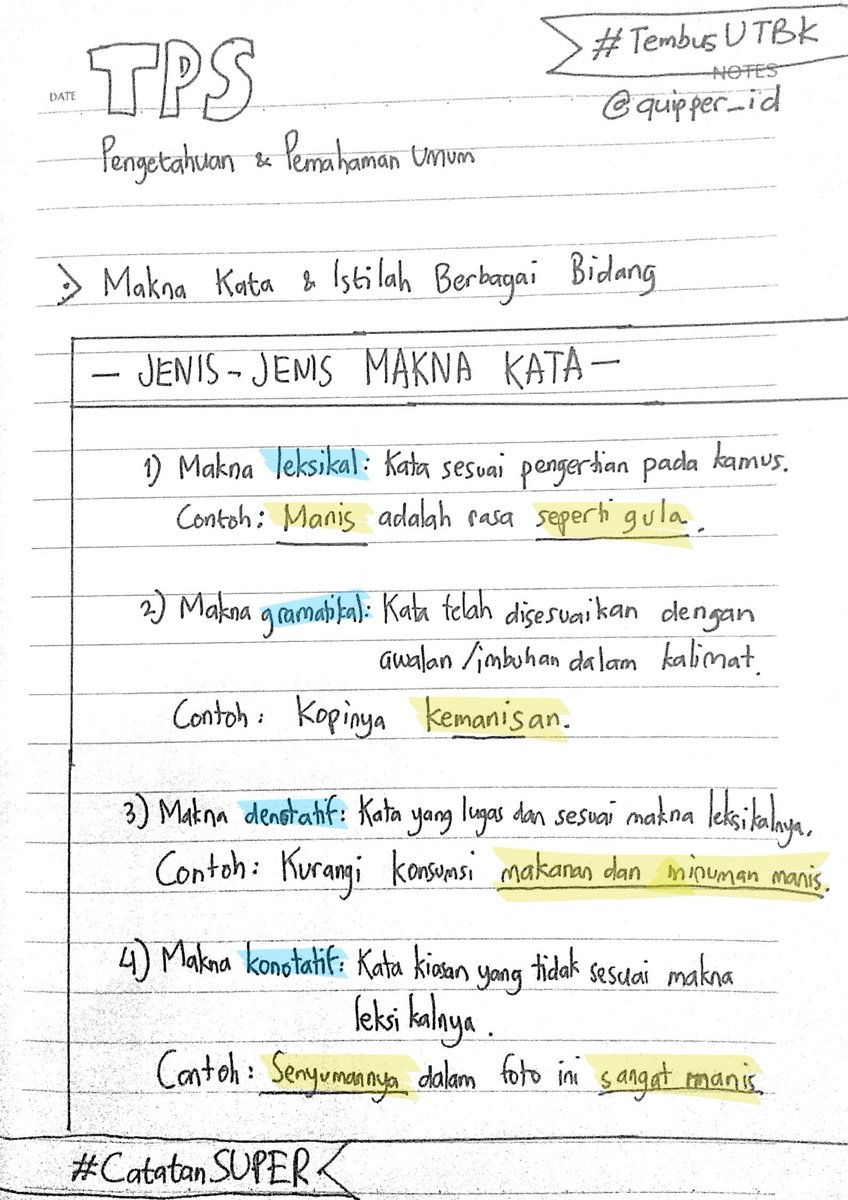 #TembusUTBK
DATE
TPS
NOTES
@quipper_id
Pengetahuan & Pemahaman Umum
Makna Kata & Istilah Berbagai Bidang
- JENIS-JENIS MAKNA KATA -
1) Makna leksikal: Kata sesuai pengertian pada kamus.
Contoh: Manis adalah rasa seperti gula.
2) Makna gramatikal: Kata telah disesuaikan dengan
awalan/imbuhan dalam kalimat.
Contoh: Kopinya kemanisan.
3) Makna denotatif: Kata yang lugas dan sesuai makna leksikalnya.
Contoh: Kurangi konsumsi makanan dan minuman manis.
4) Makna konotatif: Kata kiasan yang tidak sesuai makna
leksikalnya.
Contoh: Senyumannya dalam foto ini sangat manis.
#CatatanSUPER